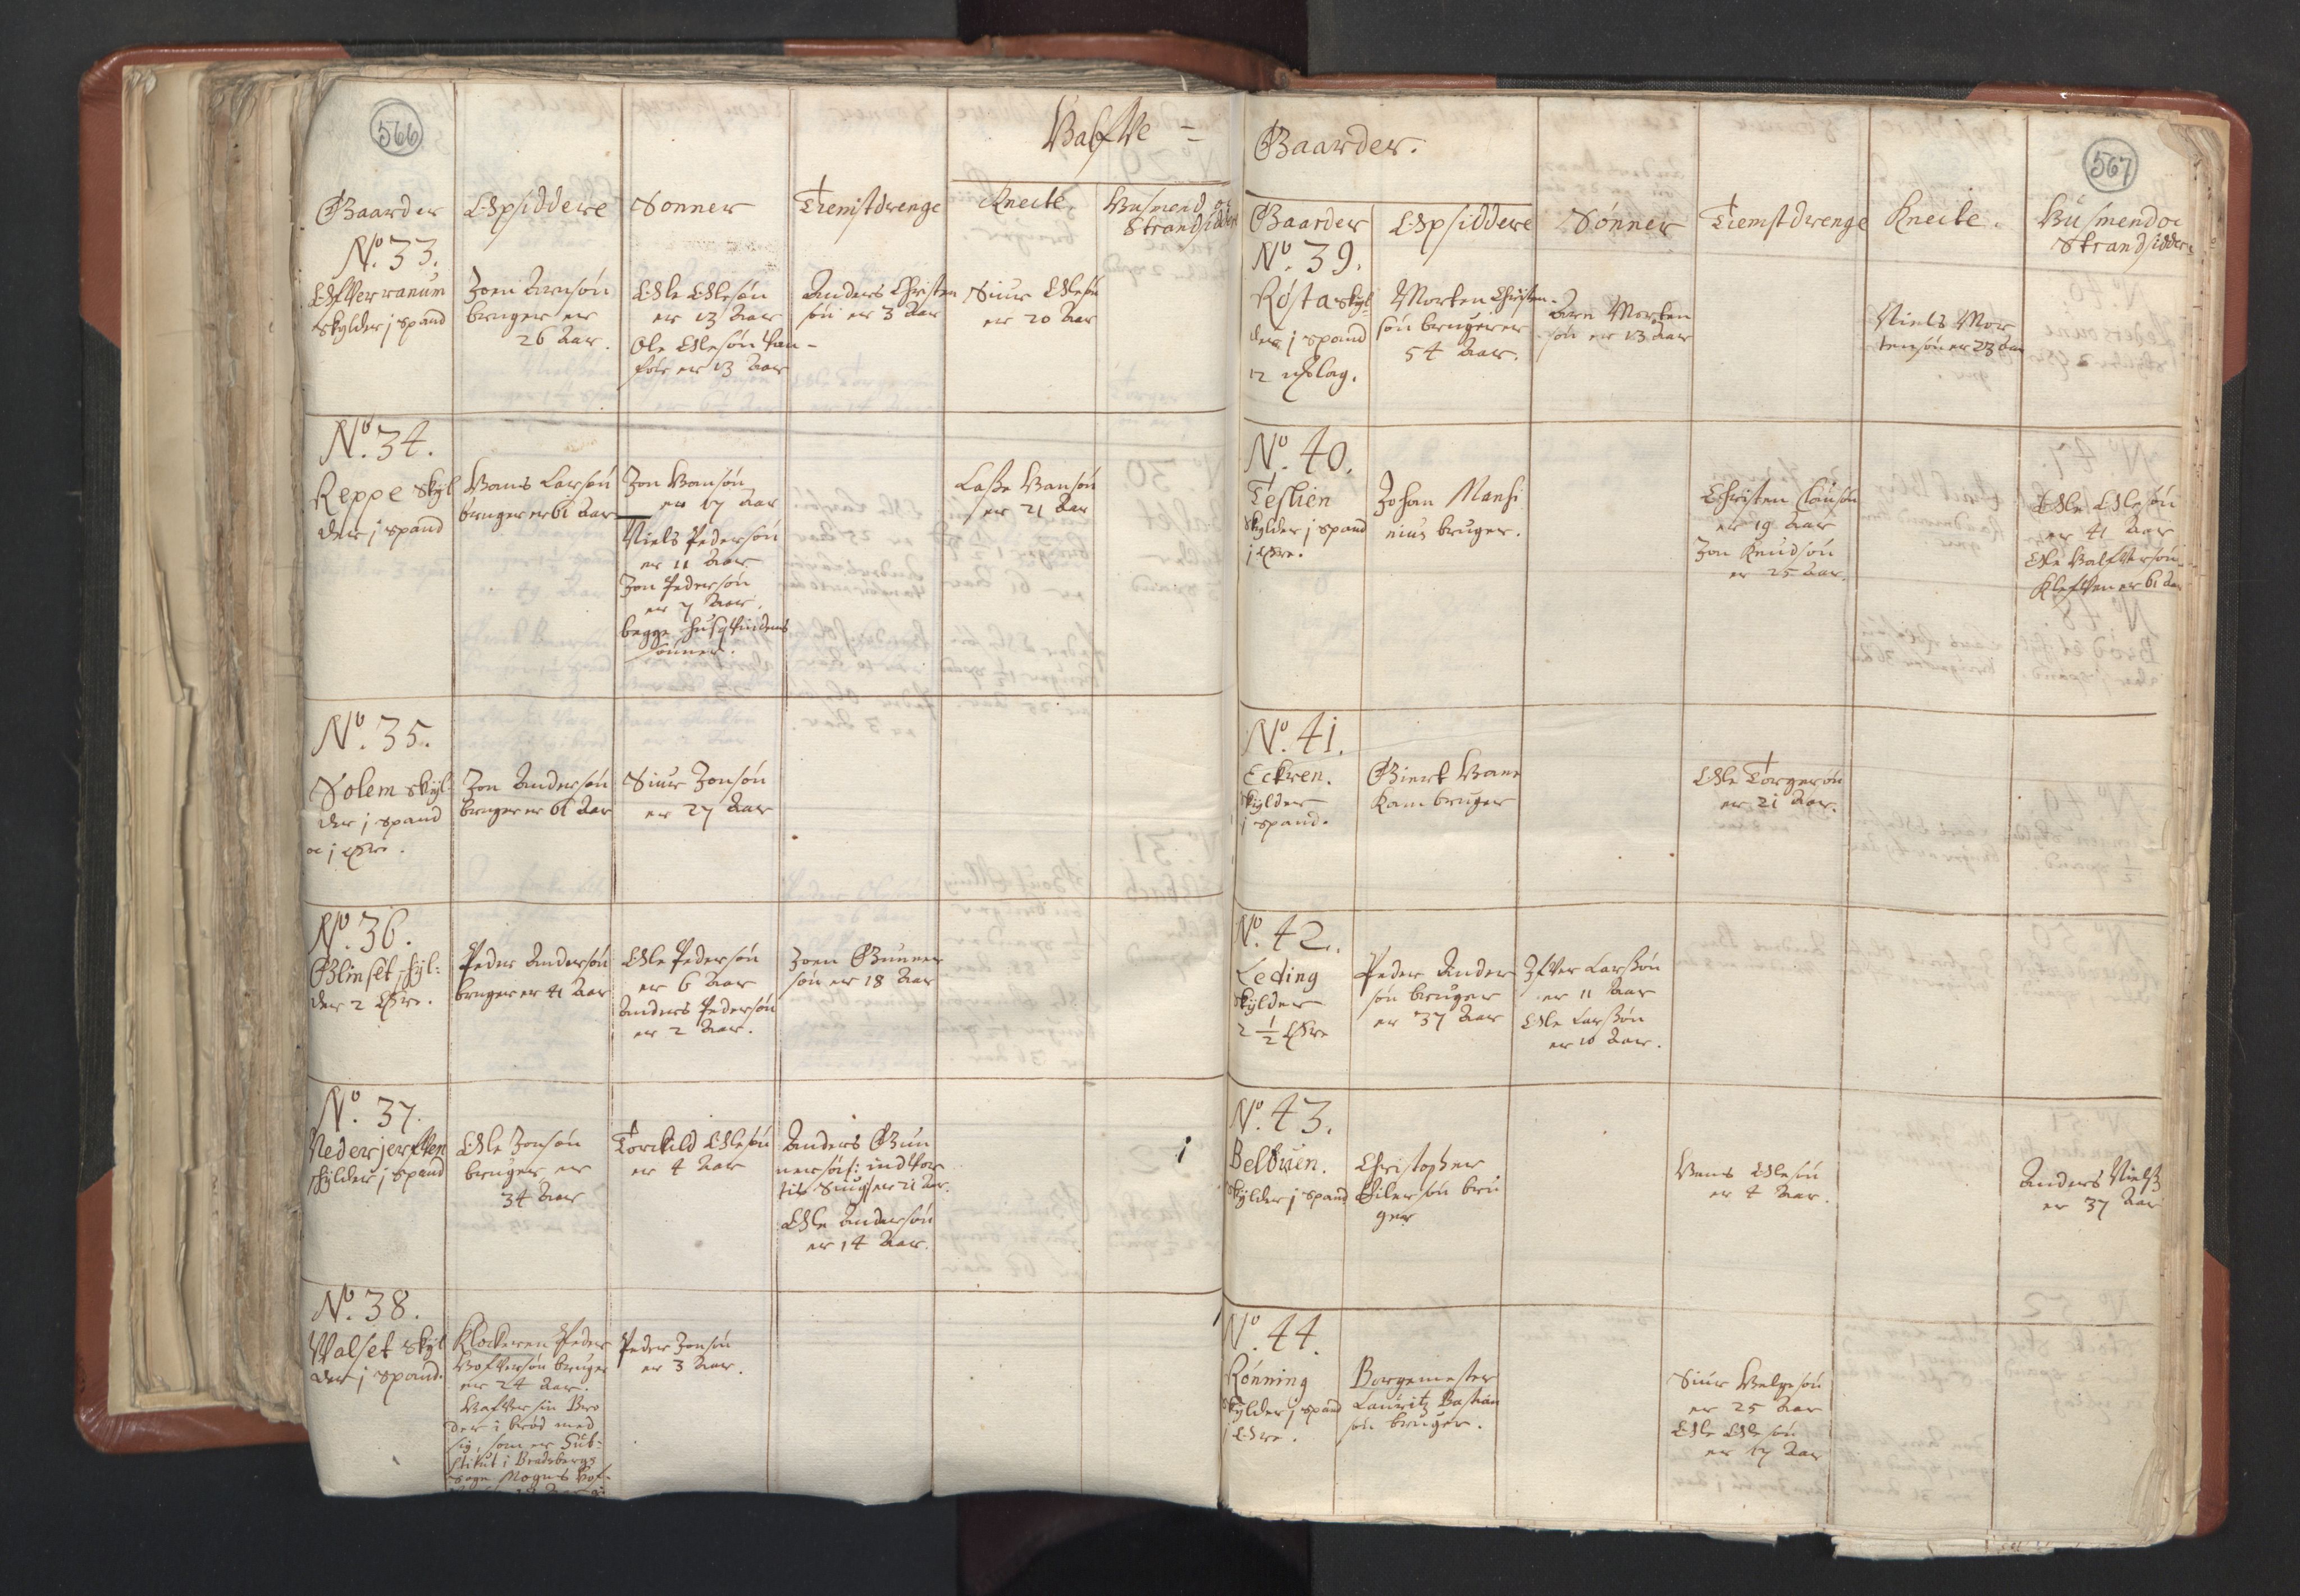 566
Half Ve =
Gaarder
Opsiddere
Sønner
Tienistdrenge
Knecte
Husmend oc
Strandsiddere
No. 33.
Ofverranum
skylder j spand
Joen Arnsøn
bruger er
26 Aar.
Ole Olesøn
er 13 Aar
Ole Olesøn Van-
før er 13 Aar
Anders Christen
søn er 3 Aar
Siur Olesøn
er 20 Aar
No. 34.
Reppe skyl
der j spand
Hans Larsøn
bruger er 61 Aar
Jon Hansøn
er 17 Aar
Niels Pedersøn
er 11 Aar
Jon Pedersøn
er 7 Aar.
begge husqvindens
sønner.
Lasse Hansøn
er 21 Aar
No. 35.
Solem skyl-
der j spand
oc j Øre.
Jon Andersøn
bruger er 61 Aar
Siur Jonsøn
er 27 Aar
No. 36.
Glinset skyl:
der 2 Øre.
Peder Andersøn
bruger er 41 Aar
Ole Pedersøn
er 6 Aar
Anders Pedersøn
er 2 Aar.
Joen Gunner
søn er 18 Aar
No. 37.
Nederjerfven
skylder j spand
Ole Jonsøn
bruger er
34 Aar
Torckild Olesøn
er 4 Aar
Anders Gun
nersøn: er 21 Aar.
Ole Andersøn
er 14 Aar.
No. 38.
Valset skyl
der j spand.
Klockeren Peder
bruger
er 24 Aar.
der i brød med
sig, som er Sub-
stitut i Bradsbergs
Sogn Mogns
Peder Jonsøn
er 3 Aar.
567
Gaarder.
Gaarder
Opsiddere
Sønner
Tiemstdrenge
Knecte.
Husmend oc
Strandsiddere
No. 39.
Røsta skyl
der j spand
12 
Morten Christen-
søn bruger er
54 Aar.
Arn Morten
søn er 13 Aar
Niels Mor
tensøn er 23 Aar
No. 40.
Teslien
skylder j spand
j Øre.
Johan Mansi
nius bruger.
Christen Clausøn
er 19 Aar
Jon Knudsøn
er 25 Aar.
Ole Olesøn
er 41 Aar
Ole Halfversøn
Klefven er 61 Aar
No. 41.
Eckren.
skylder
j spand.
Giert Hane
Kam bruger
Ole Torgersøn
er 21 Aar.
No. 42.
Leding
skylder
2 1/2 Øre
Peder Ander
søn bruger
er 37 Aar
Ifver Larsøn
er 11 Aar
Ole Larsøn
er 10 Aar.
No. 43.
Belbuen.
skylder j spand
Christopher
Eilersøn bru
ger
Hans Olesøn
er 4 Aar.
Anders Niels
er 37 Aar
No. 44.
Rønning
skylder j spand
j Øre.
Borgemester
Lauritz Bastian
søn bruger.
Siur Helgesøn
er 25 Aar
Ole Olesøn
er 17 Aar